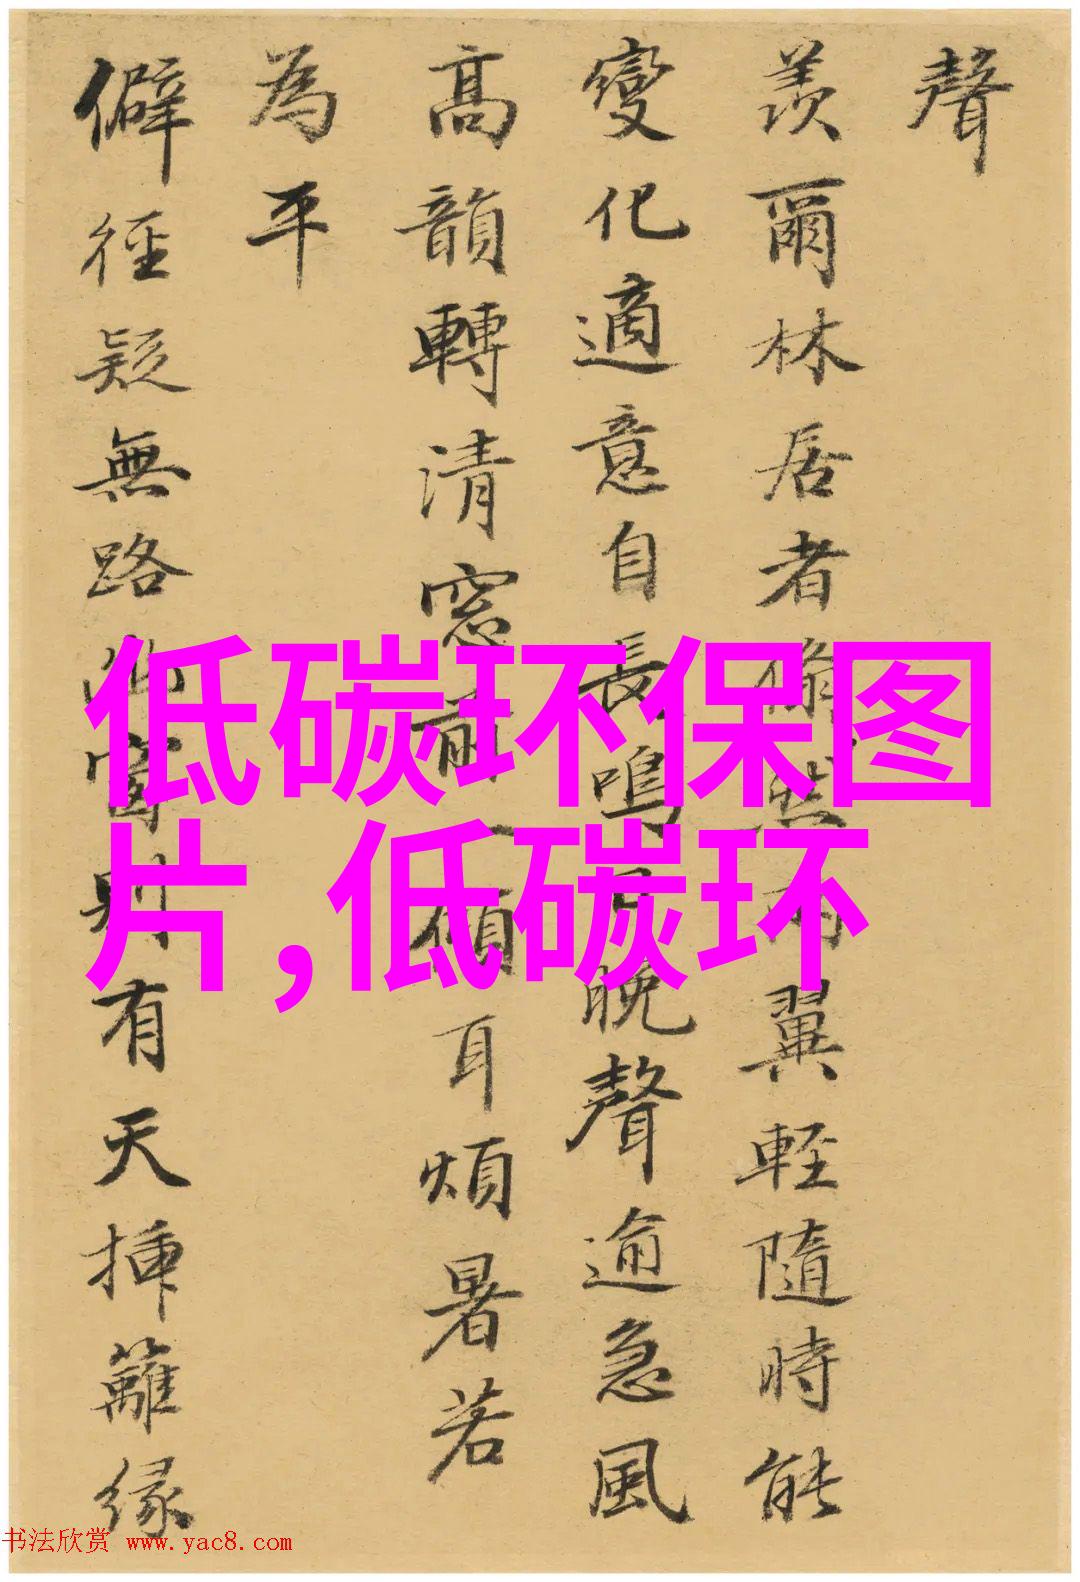 聲
羨爾林居者然兩翼輕隨時能
變化適意自長鳴晚聲逾急風
高韻轉清窓前一傾耳煩暑若
為平
僻徑疑無路別有天揷籬緣
低碳环保图
片,低碳环
书法欣赏 www.yac8.com